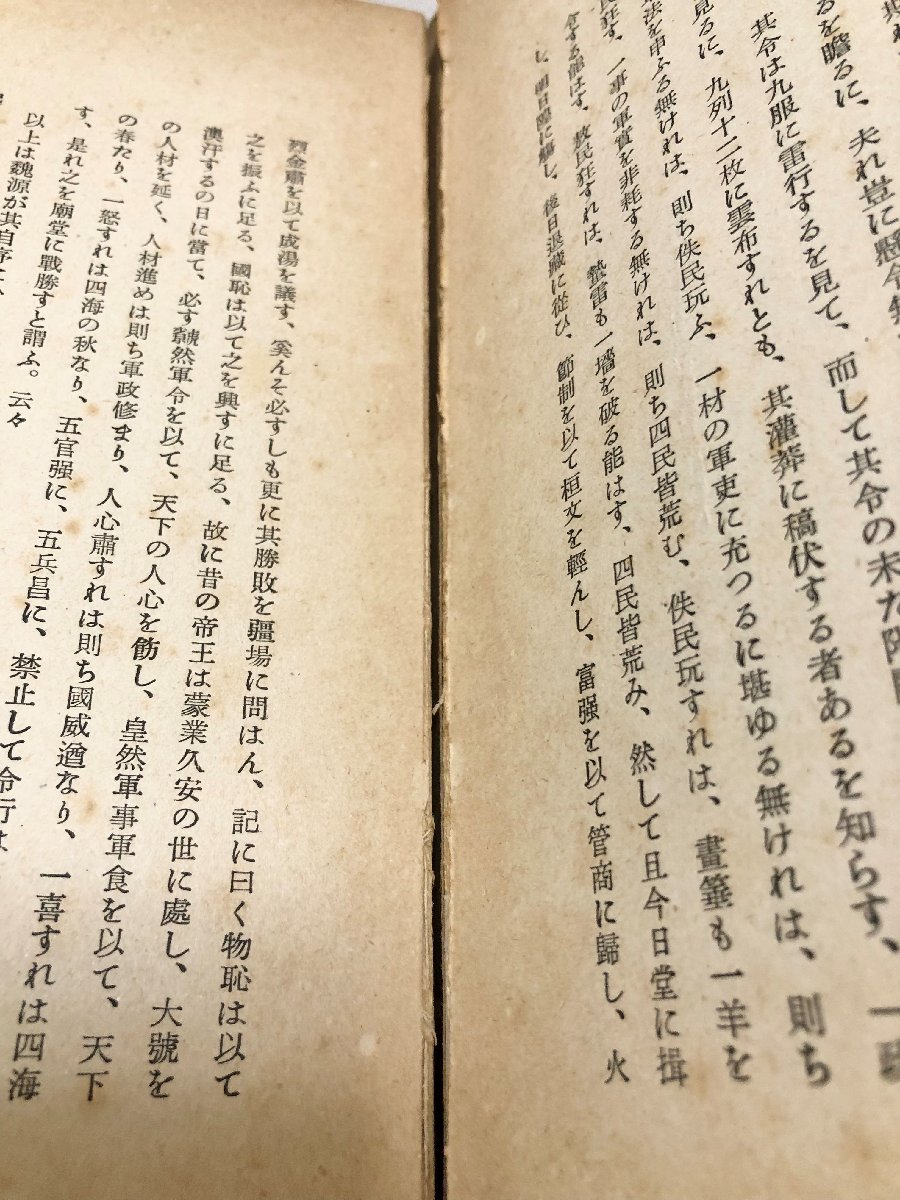 其令の未た
るを瞻るに、夫れ豈に懸令無
其令は九服に雷行するを見て、而して其令の未た
見るに、九列十二枚に雲布すれとも、其灌莽に稿伏する者あるを知らす、一
法を申ふる無けれは、則ち佚民玩ふ、一材の軍吏に充つるに堪ゆる無けれは、則ち
民狂す、一事の軍實を非耗する無けれは、則ち四民皆荒む、佚民玩すれは、畫箠も一羊を
する能はす、敖民狂すれは、蟄雷も一墻を破る能はす、四民皆荒み、然して且今日堂に揖
し、明日に觴し、後日退藏に從ひ、節制を以て桓文を輕んし、富强を以て管商に歸し、火
烈金肅を以て成湯を議す、奚んそ必すしも更に其勝敗を疆場に問はん、記に曰く物恥は以て
之を振ふに足る、國恥は以て之を興すに足る、故に昔の帝王は蒙業久安の世に處し、大號を
渙汗するの日に當て、必す虩然軍令を以て、天下の人心を飭し、皇然軍事軍食を以て、天下
の人材を延く、人材進めは則ち軍政修まり、人心肅すれは則ち國威遒なり、一喜すれは四海
の春たり、一怒すれは四海の秋なり、五官强に、五兵昌に、禁止して令行は
す、是れ之を廟堂に戰勝すと謂ふ。云々
以上は魏源が其自序に